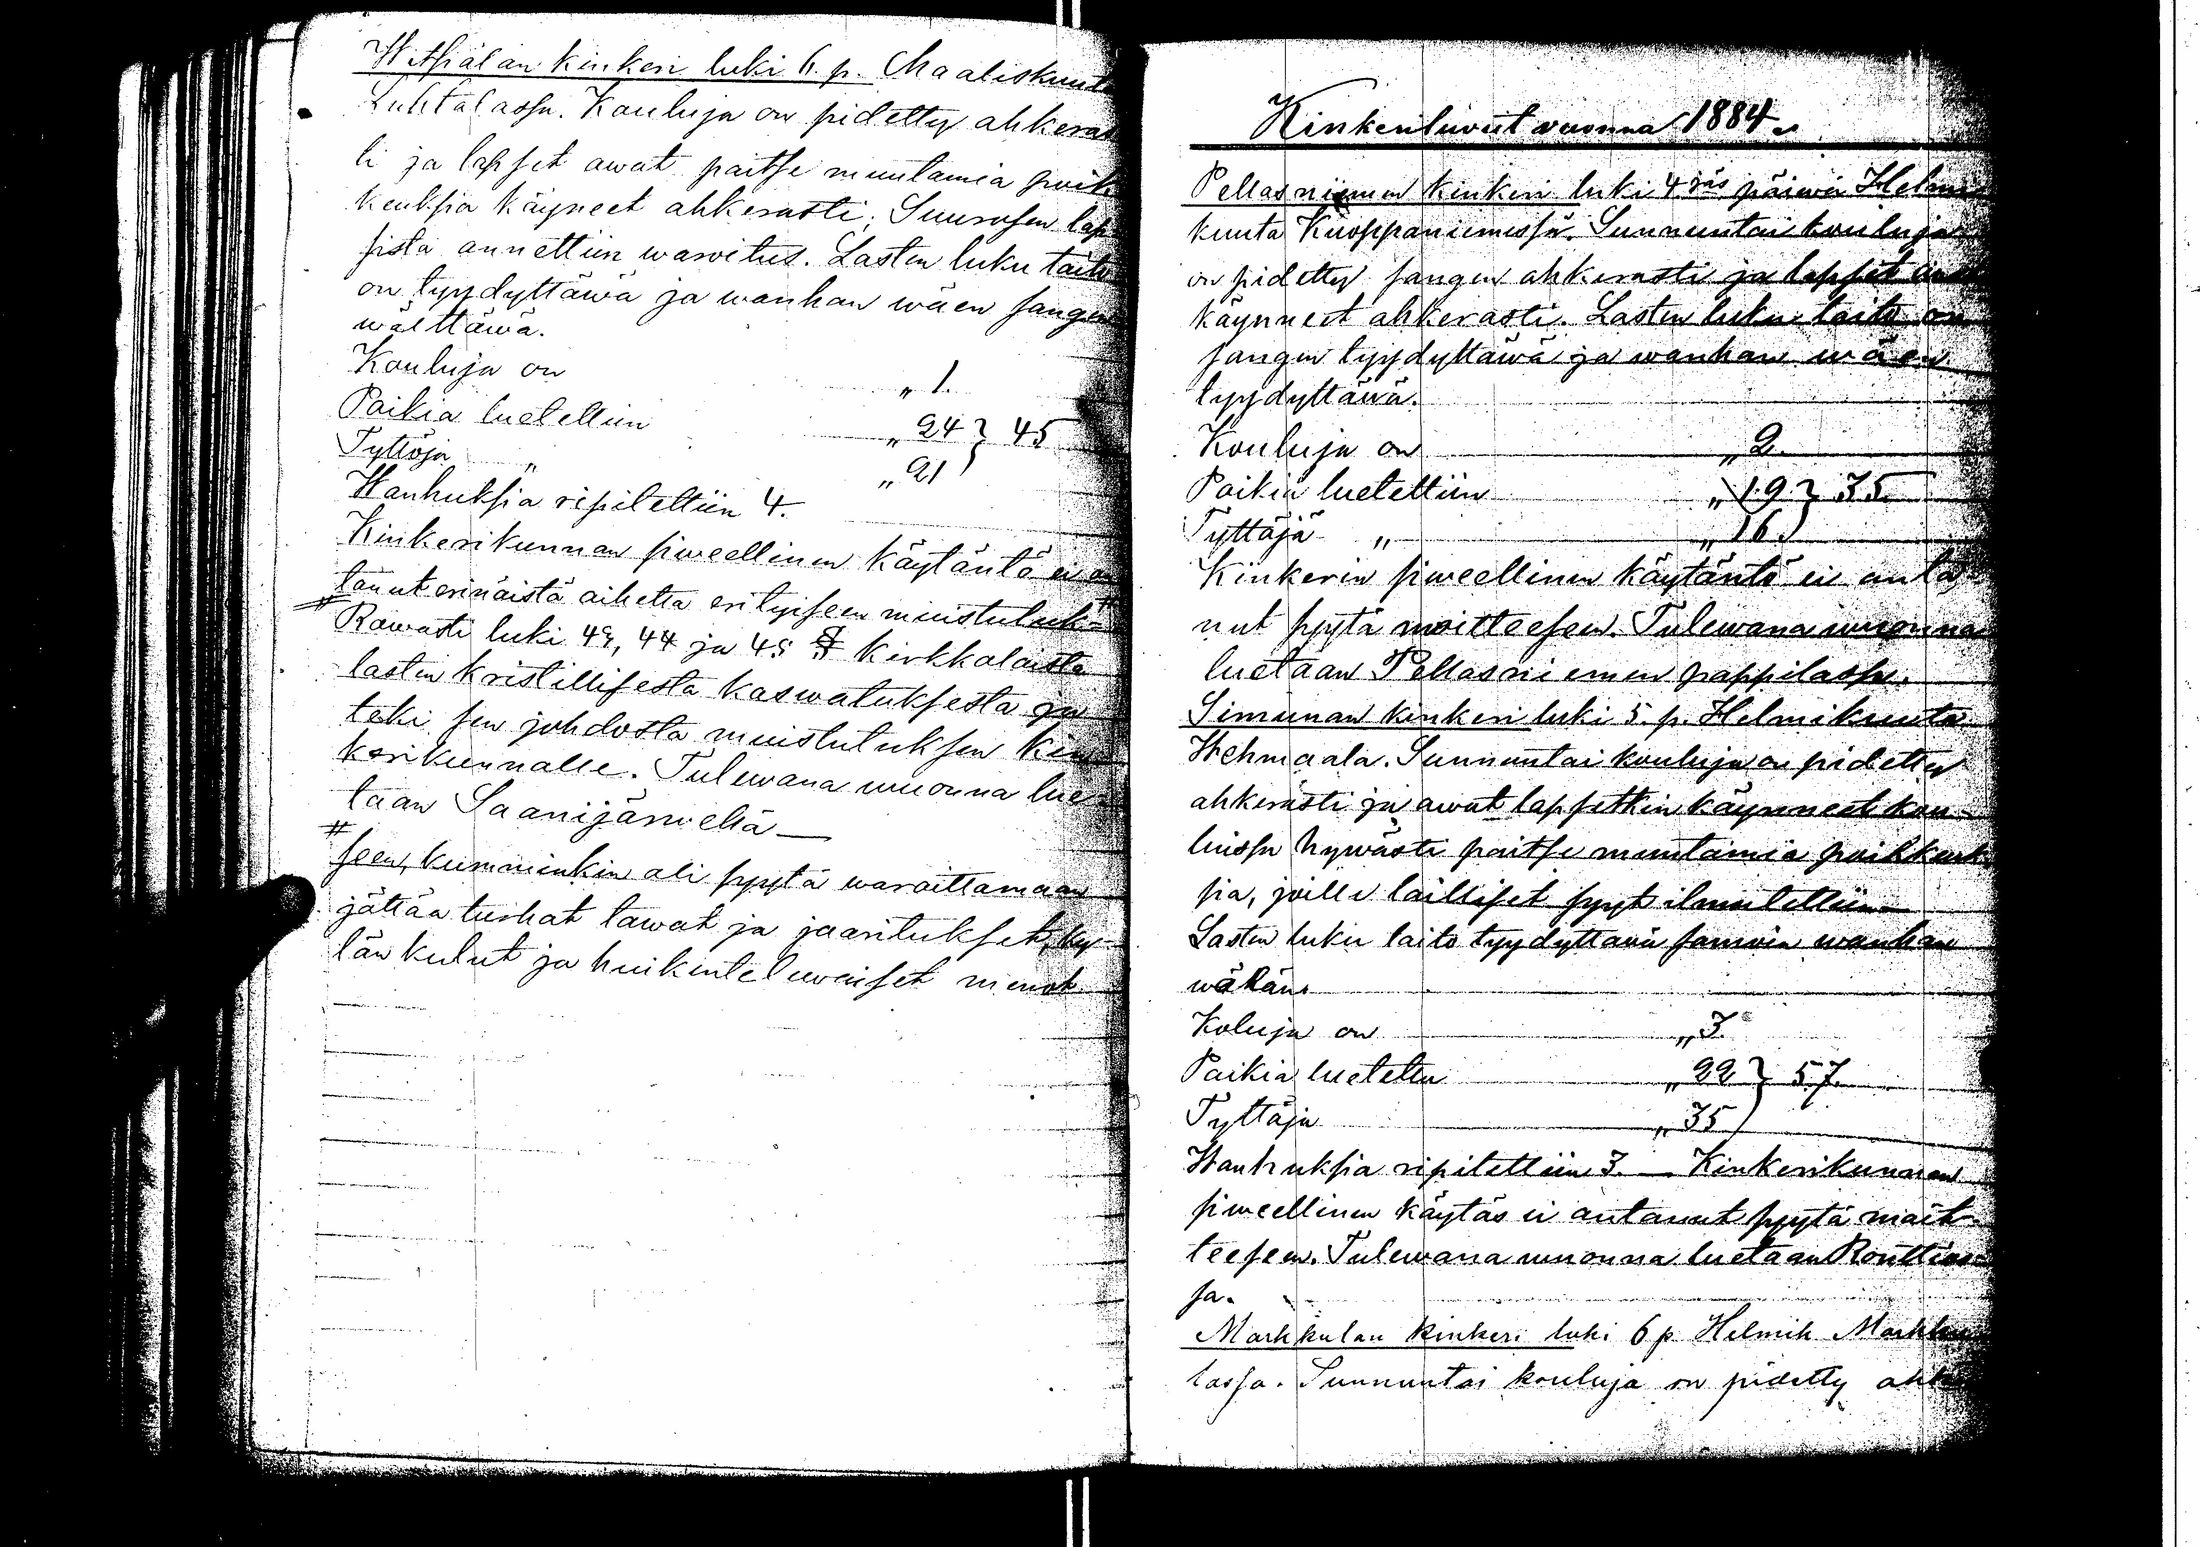 Witsiälän kinkeri luki 6. p. Maaliskuuta
Luhtalassa. Kouluja on pidetty ahkeras
ti ja lapset awat paitse muutamia poik
keuksia käyneet ahkerasti; Suurosen lap
sista annettiin waroitus. Lasten luku taito
on tyydyttäwä ja wanhan wäen sangen
wälttäwä.
Kouluja on „ 1.
Poikia luetettiin „ 24 } 45
Tyttöjä „ „ 21
Wanhuksia ripitettiin 4.
Kinkerikunnan siweellinen käytäntö ei an
tanut erinäistä aihetta erityiseen muistutuk-#
Rowasti luki 43, 44 ja 45 § kirkkolaista
lasten kristillisestä kaswatuksesta ja
teki sen johdosta muistutuksen kin
kerikunnalle. Tulewana wuonna lue-
taan Saanijärwellä—
#
seen, kumminkin oli syytä waroittamaan
jättää turhat tawat ja jaaritukset, ky-
län kulut ja huikentelewaiset menot
Kinkeriluwut wuonna 1884.
Pellasniemen kinkeri luki 4 jäs päiwä Helmi
kuuta Kuoppaniemessä. Sunnuntai kouluja
on pidetty sangen ahkerasti ja lapset awat
käynneet ahkerasti. Lasten luku taito on
sangen tyydyttäwä ja wanhan wäen
tyydyttäwä.
Kouluja on „ 2.
Poikia luetettiin „ 19 } 35
Tyttöjä „ „ 16
Kinkerin siweellinen käytäntö ei anta
nut syytä moitteesen. Tulewana wuonna
luetaan Pellasniemen pappilassa.
Simunan kinkeri luki 5. p. Helmikuuta
Wehmaala. Sunnuntai kouluja on pidetty
ahkerasti ja awat lapsetkin käynneet kou
luissa hywästi paitse muutamia poikkeuk
sia, joille lailliset syyt ilmoitettiin—
Lasten luku taito tyydyttäwä samoin wanhan
wäkän.
Koluja on „ 3.
Poikia luetettu „ 22 } 57.
Tyttöjä „ 35
Wanhuksia ripitettiin 3. — Kinkerikunnan
siweellinen käytös ei antanut syytä moit-
teeseen. Tulewana wuonna luetaan Routtias-
sa.
Markkulan kinkeri luki 6 p. Helmik Markku
lassa. Sunnuntai kouluja on pidetty ahke